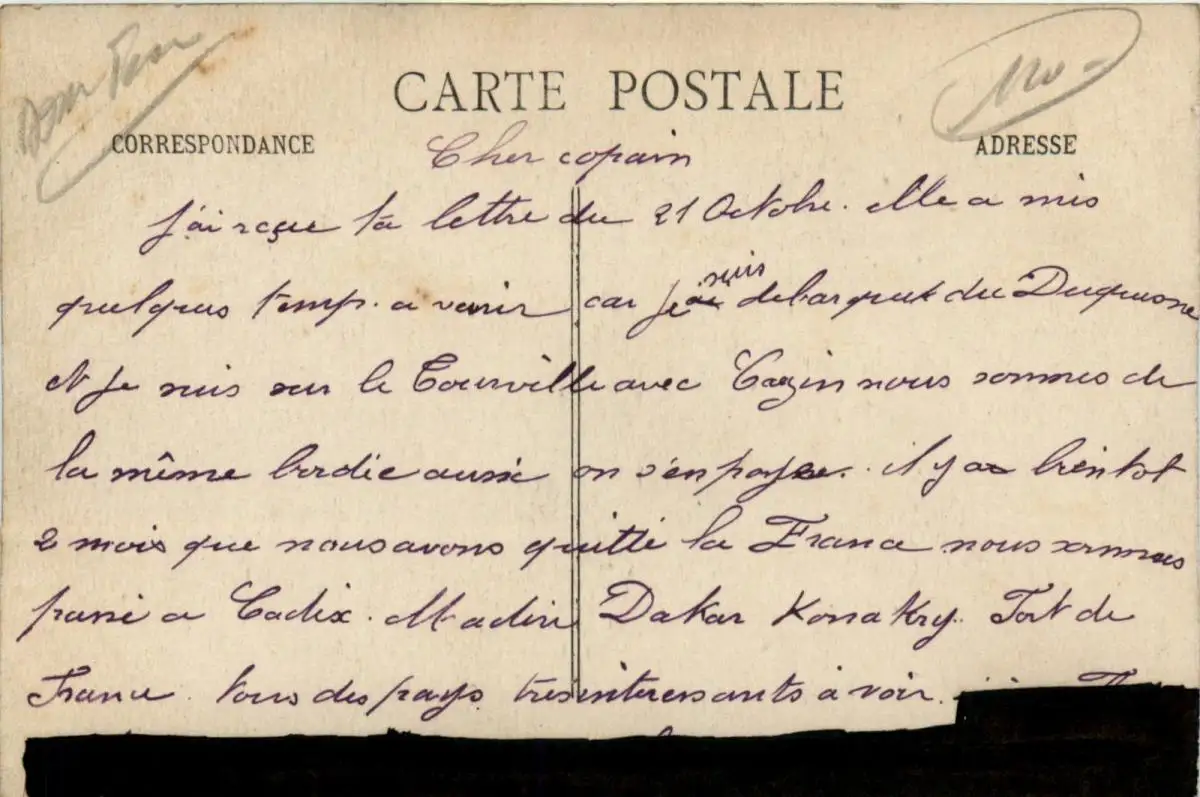 CARTE POSTALE
CORRESPONDANCE
ADRESSE
Cher copain
j'ai reçue ta lettre du 21 Octobre. elle a mis
quelques temp. a venir car je suis debarquet du Duquesne
et je suis sur le Tourville avec Cazin nous sommes de
la même bordée aussi on s'en paye. il y a bientot
2 mois que nous avons quitté la France nous sommes
passé a Cadix. Madère Dakar Konakry. Fort de
France. tous des pays très interessants à voir.